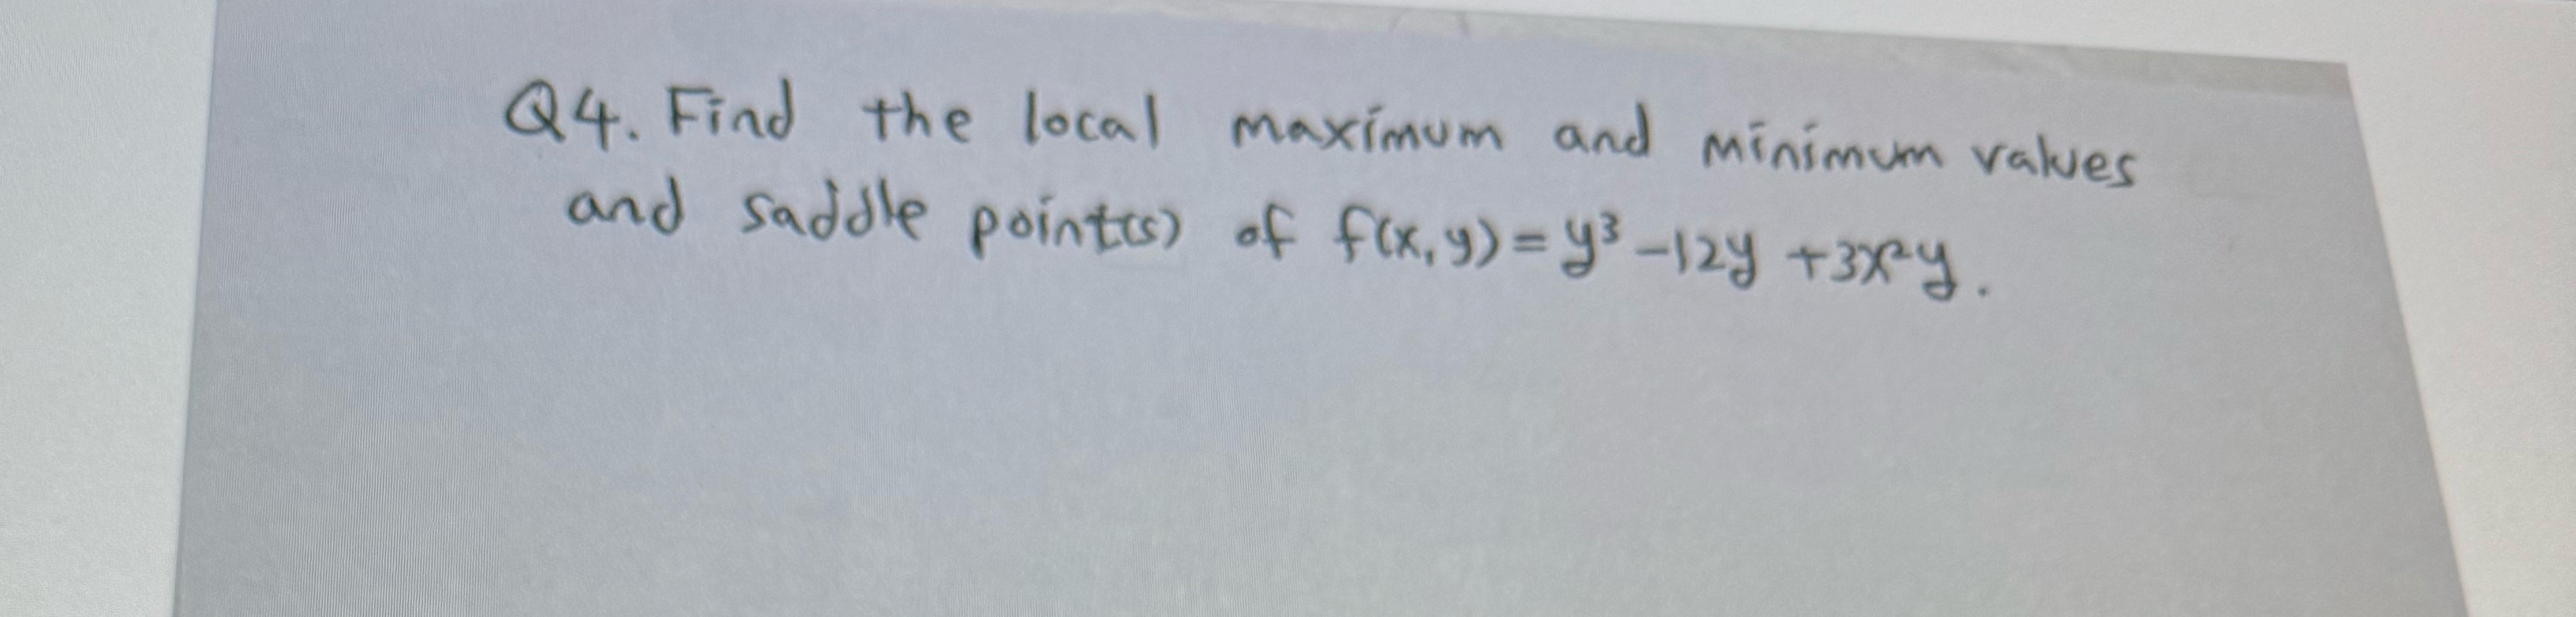 Q4. Find the local maximum and minimum values
and saddle point(s) of f(x,y)=y³-12y+3x²y.